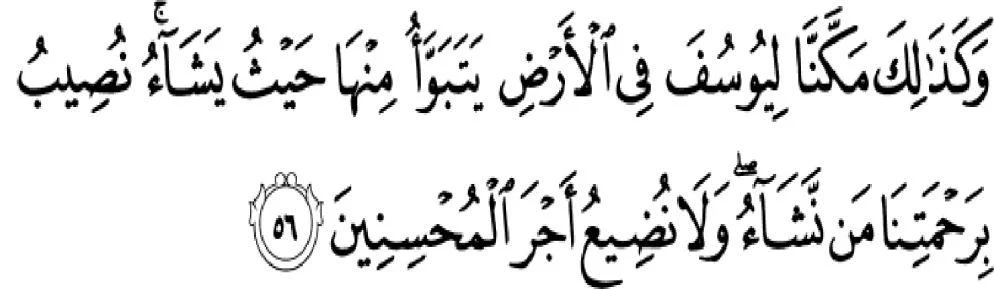 وَكَذَٰلِكَ مَكَّنَّا لِيُوسُفَ فِى ٱلْأَرْضِ يَتَبَوَّأُ مِنْهَا حَيْثُ يَشَآءُ ۚ نُصِيبُ
بِرَحْمَتِنَا مَن نَّشَآءُ ۖ وَلَا نُضِيعُ أَجْرَ ٱلْمُحْسِنِينَ ٥٦